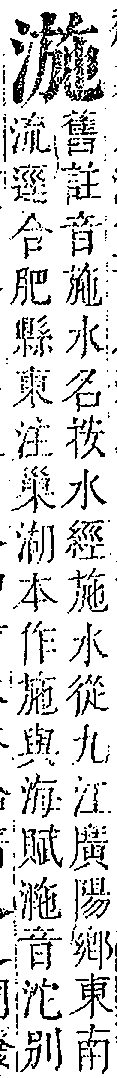 㴰
舊註音施水名按水經施水從九江廣陽鄉東南
流逕合肥縣東注巢湖本作施與海賦㴰音沱別